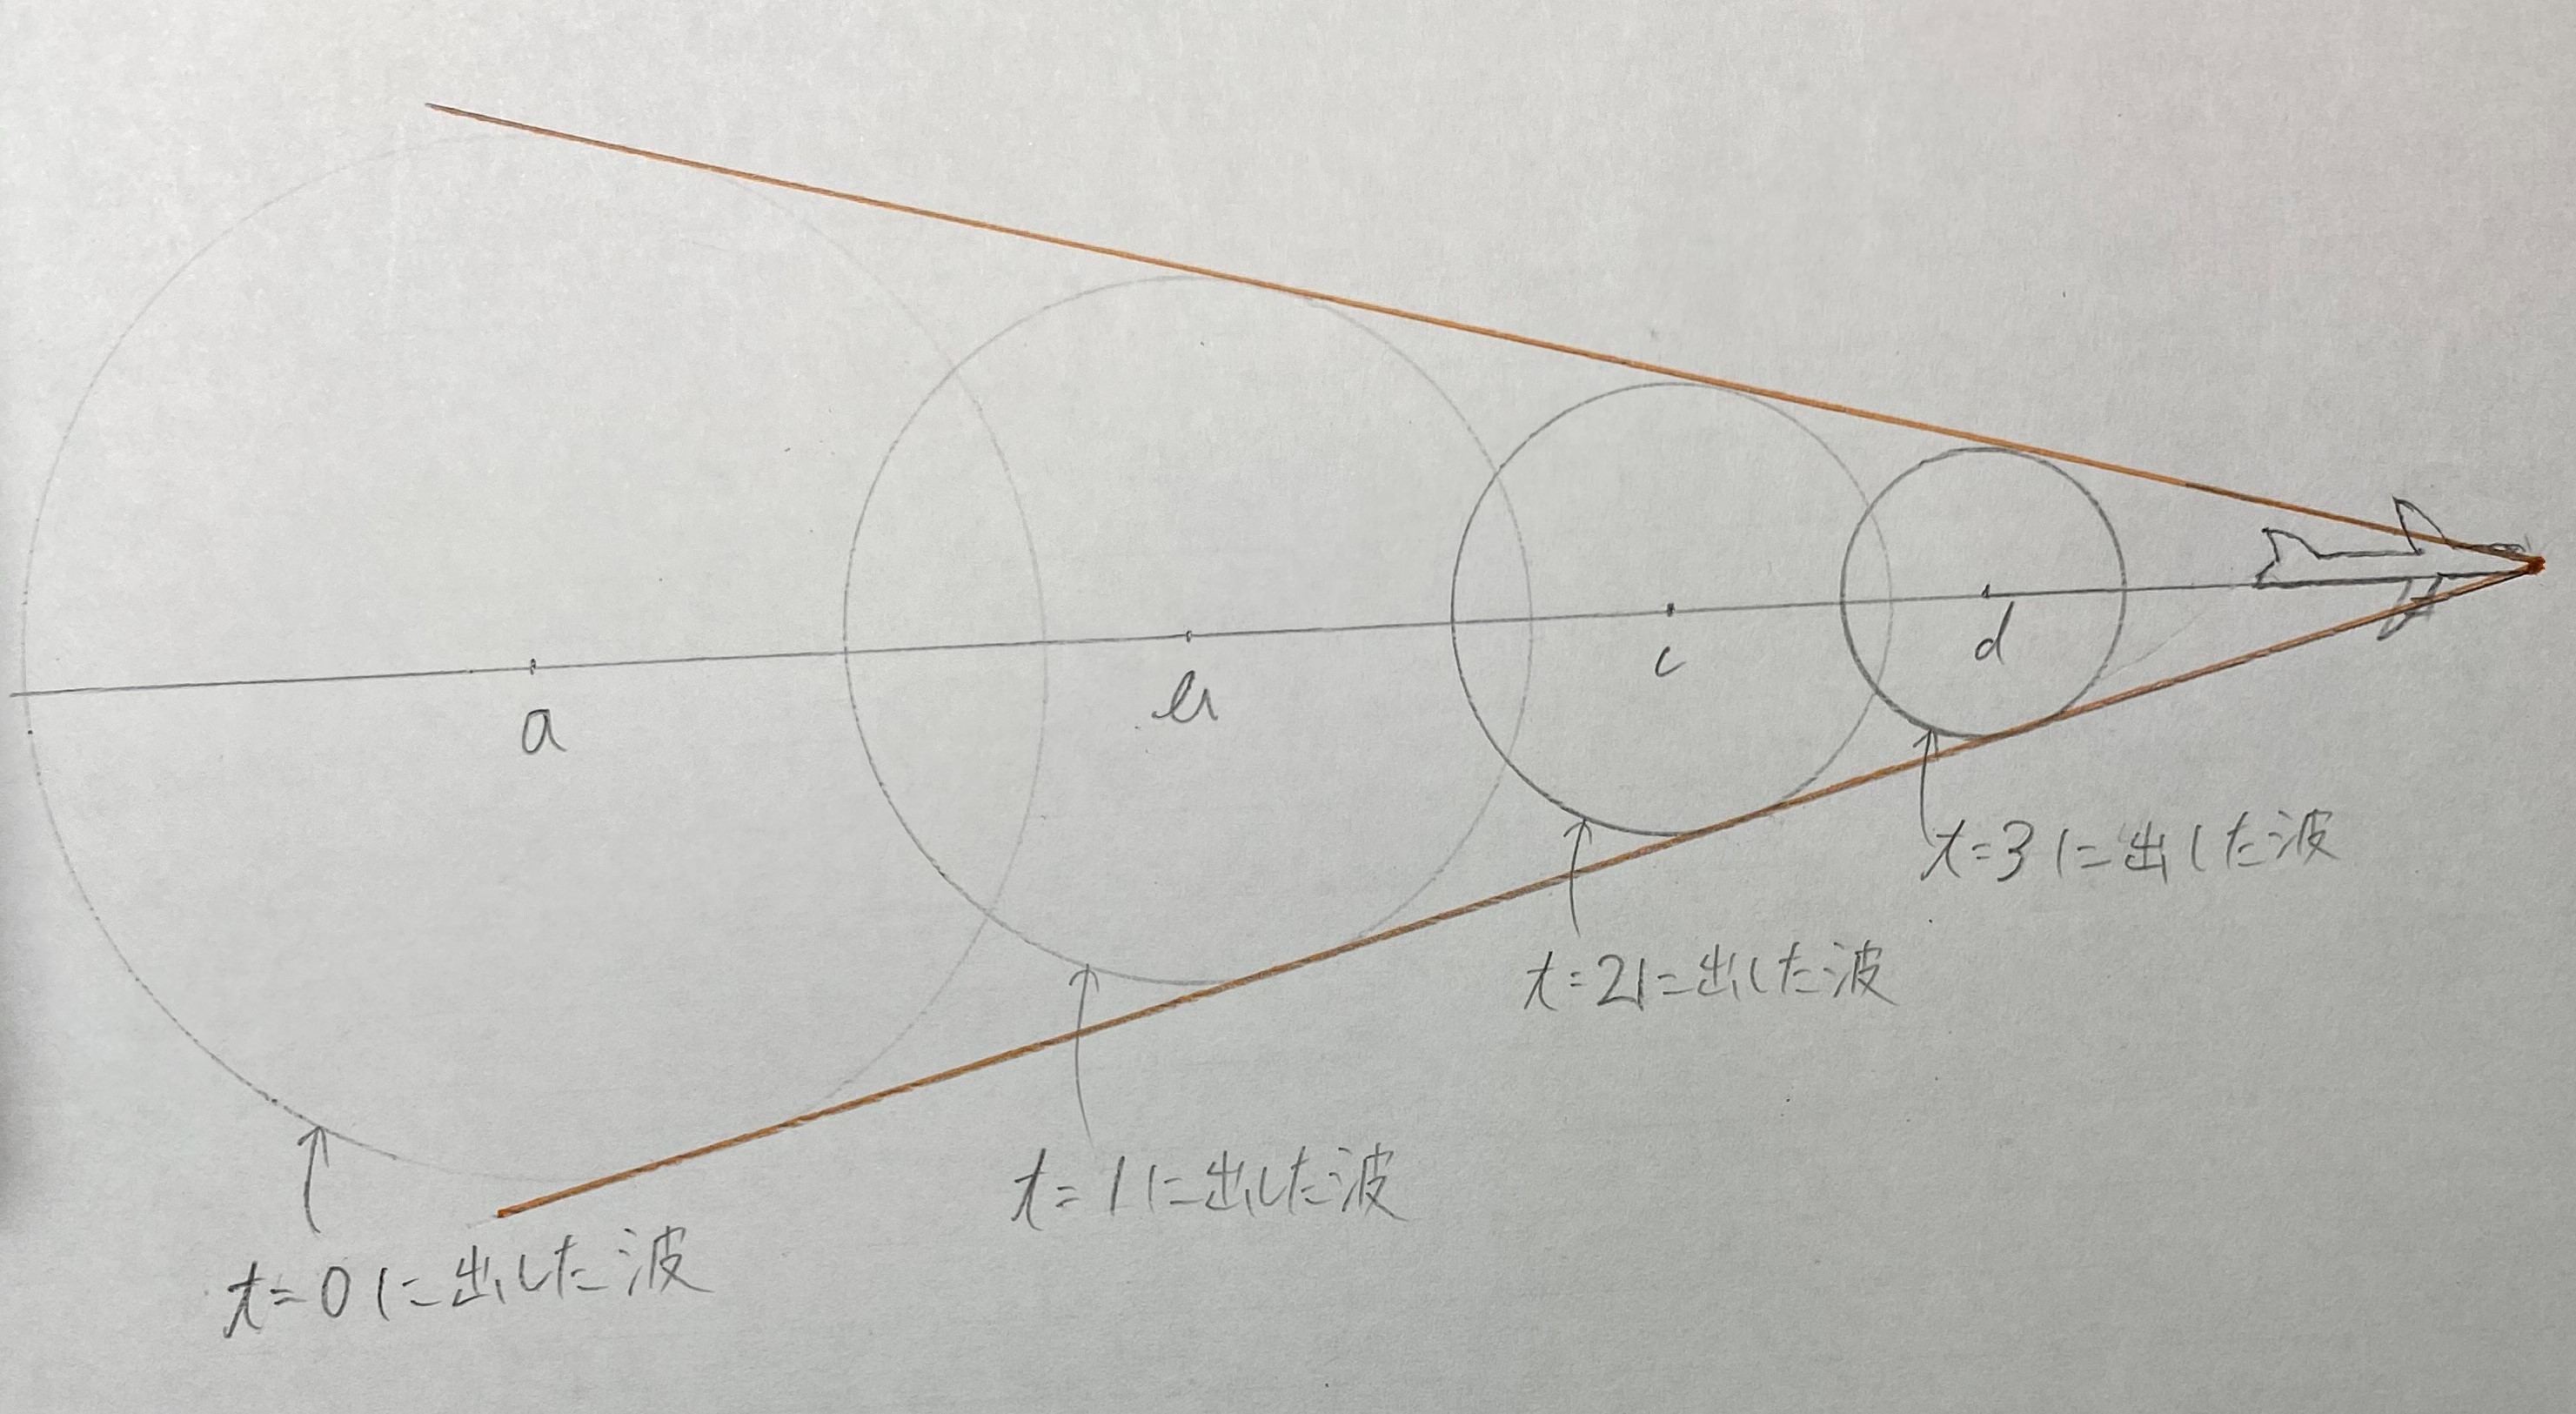 a
b
c
d
t=3に出した波
t=2に出した波
t=1に出した波
t=0に出した波